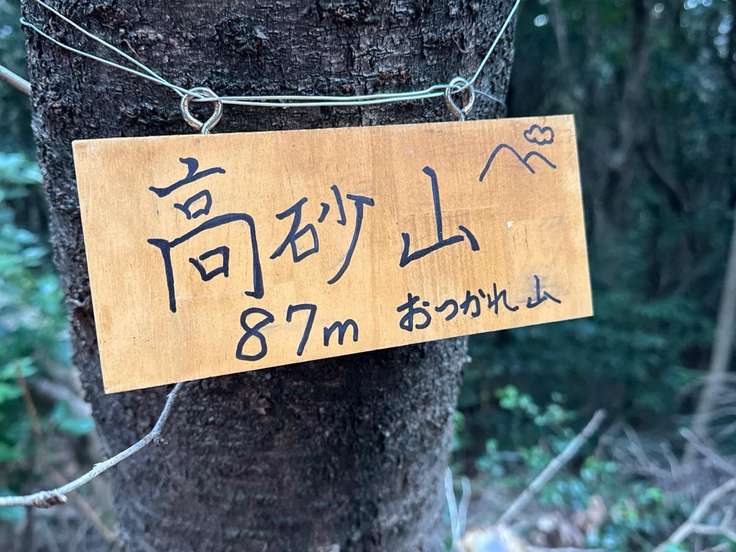 高砂山
87m おつかれ山